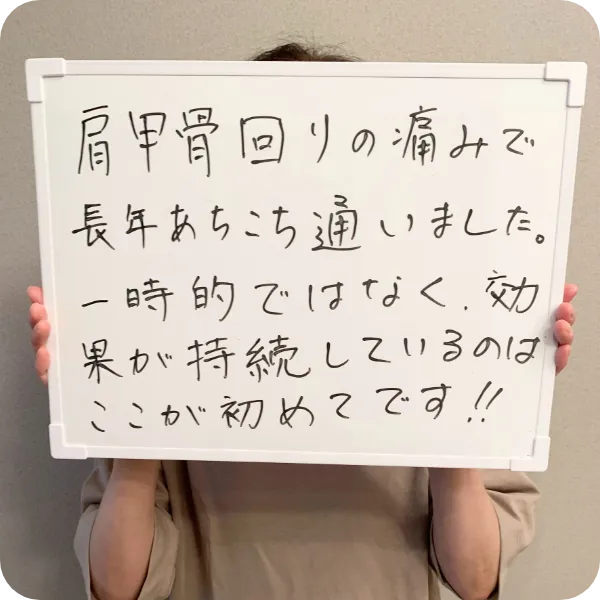 肩甲骨回りの痛みで
長年あちこち通いました。
一時的ではなく、効
果が持続しているのは
ここが初めてです!!